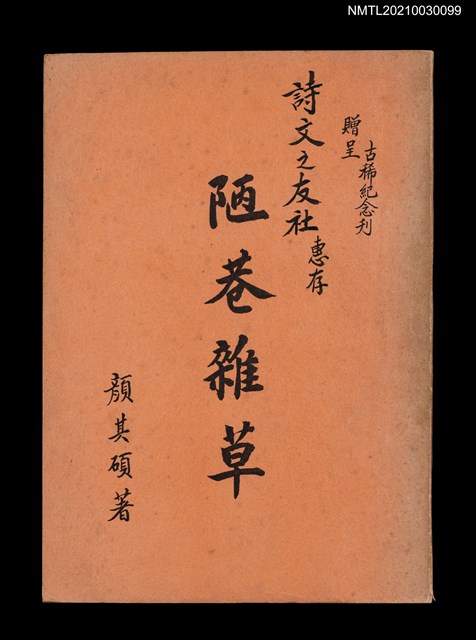 NMTL20210030099
古稀紀念刊
贈呈
詩文之友社惠存
陋巷雜草
顏其碩著